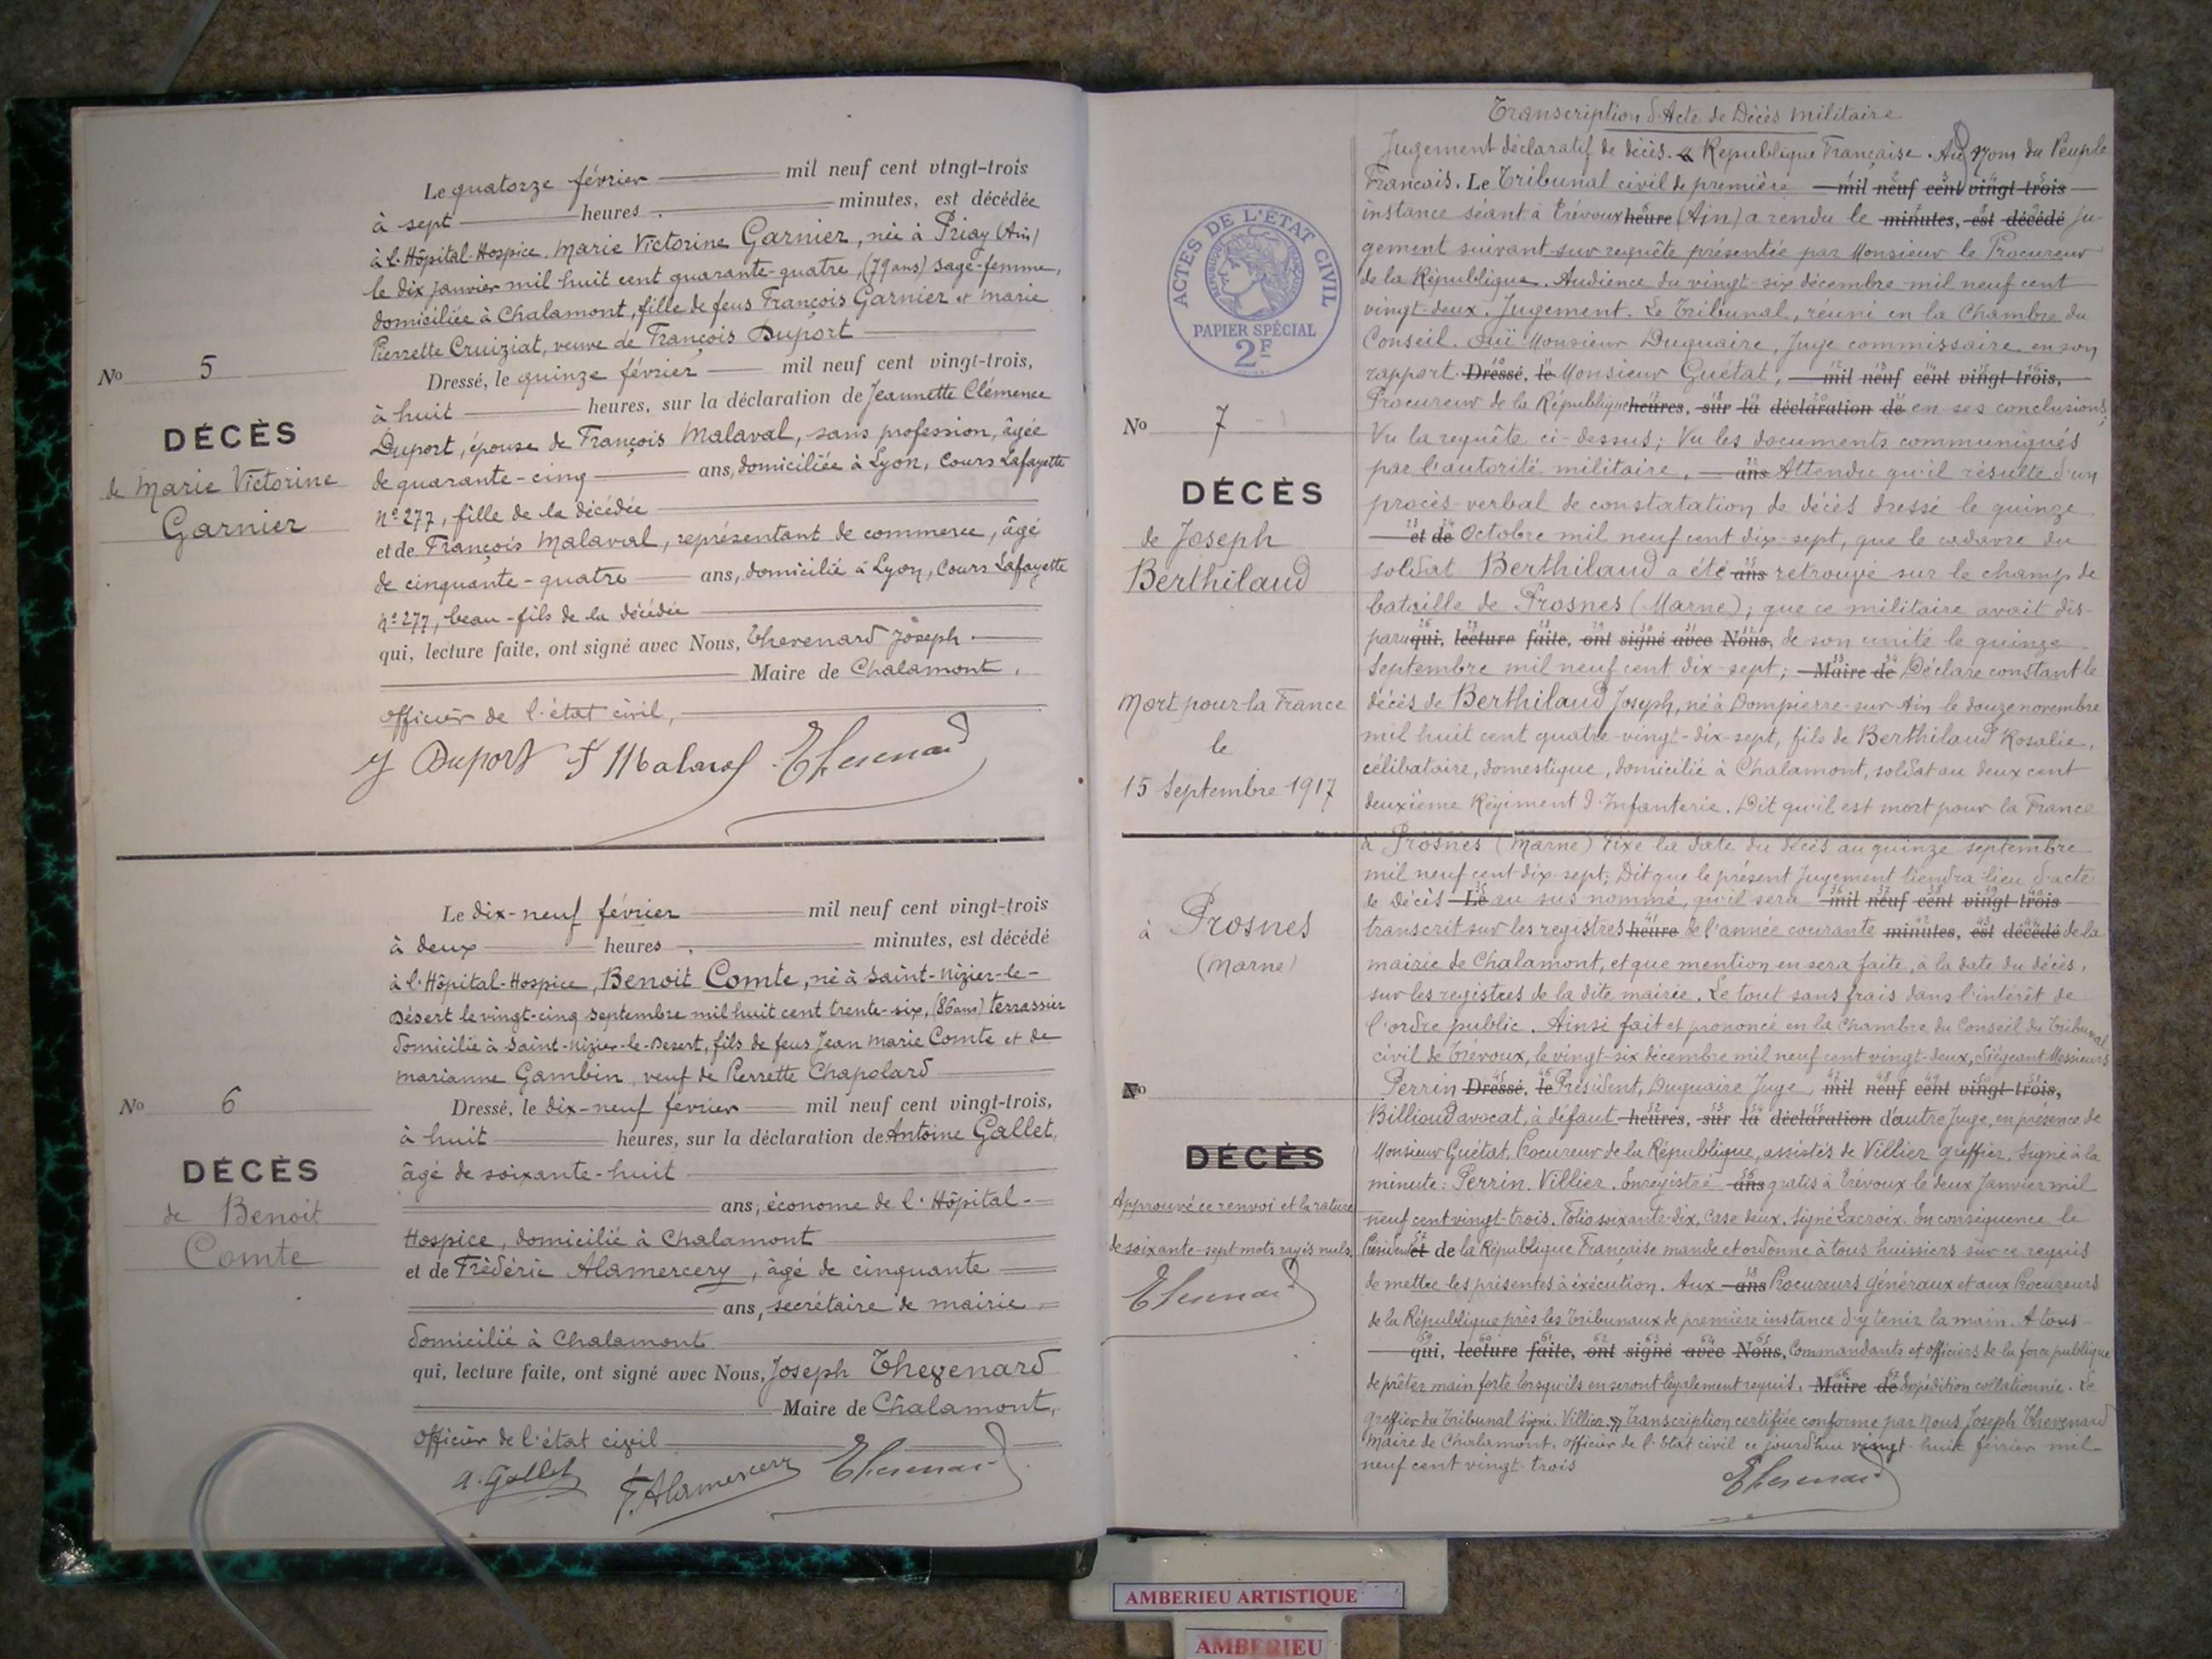 Le quatorze février mil neuf cent vingt-trois
à sept heures minutes, est décédée
à l'Hôpital-Hospice, Marie Victorine Garnier, née à Priay (Ain)
le dix janvier mil huit cent quarante-quatre, (79 ans) sage-femme,
domiciliée à Chalamont, fille de feus François Garnier et Marie
Pierrette Cruiziat, veuve de François Duport
No 5
Dressé, le quinze février mil neuf cent vingt-trois,
à huit heures, sur la déclaration de Jeannette Clémence
DÉCÈS
Duport, épouse de François Malaval, sans profession, âgée
de Marie Victorine
de quarante-cinq ans, domiciliée à Lyon, Cours Lafayette
Garnier
nº 277, fille de la décédée
et de François Malaval, représentant de commerce, âgé
de cinquante-quatre ans, domicilié à Lyon, Cours Lafayette
nº 277, beau-fils de la décédée
qui, lecture faite, ont signé avec Nous, Thevenard Joseph
Maire de Chalamont,
officier de l'état civil,
J Duport F Malaval Thevenard
Le dix-neuf février mil neuf cent vingt-trois
à deux heures minutes, est décédé
à l'Hôpital-Hospice, Benoit Comte, né à Saint-Nizier-le-
Désert le vingt-cinq septembre mil huit cent trente-six, (86 ans) terrassier
domicilié à Saint-Nizier-le-Desert, fils de feus Jean Marie Comte et de
Marianne Gambin, veuf de Pierrette Chapolard
No 6
Dressé, le dix-neuf fevrier mil neuf cent vingt-trois,
à huit heures, sur la déclaration de Antoine Gallet,
DÉCÈS
âgé de soixante-huit
de Benoit
ans, économe de l'Hôpital-
Comte
Hospice, domicilié à Chalamont
et de Frédéric Alamercery, âgé de cinquante
ans, secrétaire de mairie
domicilié à Chalamont
qui, lecture faite, ont signé avec Nous, Joseph Thevenard
Maire de Chalamont,
officier de l'état civil
A. Gallet F. Alamercery Thevenard
ACTES DE L'ETAT CIVIL
REPUBLIQUE FRANÇAISE
PAPIER SPÉCIAL
2F
No 7
DÉCÈS
de Joseph
Berthilaud
Mort pour la France
le
15 Septembre 1917
à Prosnes
(Marne)
No
DÉCÈS
Approuvé ce renvoi et la rature
de soixante-sept mots rayés nuls.
Thevenard
Transcription d'Acte de Décès Militaire
Jugement déclaratif de décès. République Française. Au Nom du Peuple
Français. Le Tribunal civil de première mil neuf cent vingt-trois
instance séant à Trévoux heure (Ain) a rendu le minutes, est décédé ju-
gement suivant sur requête présentée par Monsieur le Procureur
de la République. Audience du vingt-six décembre mil neuf cent
vingt-deux. Jugement. Le Tribunal, réuni en la Chambre du
Conseil. Ouï Monsieur Duquaire, Juge commissaire en son
rapport Dressé, le Monsieur Guétat, mil neuf cent vingt-trois,
Procureur de la République heures, sur la déclaration de en ses conclusions;
Vu la requête ci-dessus; Vu les documents communiqués
par l'autorité militaire, ans Attendu qu'il résulte d'un
procès-verbal de constatation de décès dressé le quinze
et de Octobre mil neuf cent dix-sept, que le cadavre du
soldat Berthilaud a été ans retrouvé sur le champ de
bataille de Prosnes (Marne); que ce militaire avait dis-
paru qui, lecture faite, ont signé avec Nous, de son unité le quinze
Septembre mil neuf cent dix-sept; Maire de Déclare constant le
décès de Berthilaud Joseph, né à Dompierre-sur-Ain le douze novembre
mil huit cent quatre-vingt-dix-sept, fils de Berthilaud Rosalie,
célibataire, domestique, domicilié à Chalamont, soldat au deux cent
deuxième Régiment d'Infanterie. Dit qu'il est mort pour la France
à Prosnes (Marne) Fixe la date du décès au quinze septembre
mil neuf cent dix-sept; Dit que le présent jugement tiendra lieu d'acte
de décès Le au sus nommé, qu'il sera mil neuf cent vingt trois
transcrit sur les registres heure de l'année courante minutes, est décédé de la
mairie de Chalamont, et que mention en sera faite, à la date du décès,
sur les registres de la dite mairie. Le tout sans frais dans l'intérêt de
l'ordre public. Ainsi fait et prononcé en la Chambre du Conseil du Tribunal
civil de Trévoux, le vingt-six décembre mil neuf cent vingt-deux, Siégeant Messieurs
Perrin Dressé, le Président, Duquaire Juge, mil neuf cent vingt-trois,
Billioud avocat, à défaut heures, sur la déclaration d'autre Juge, en présence de
Monsieur Guétat, Procureur de la République, assistés de Villier greffier. Signé à la
minute: Perrin. Villier. Enregistré ans gratis à Trévoux le deux Janvier mil
neuf cent vingt-trois. Folio soixante-dix, Case deux. Signé Lacroix. En conséquence le
Président et de la République Française mande et ordonne à tous huissiers sur ce requis
de mettre les présentes à exécution. Aux ans Procureurs Généraux et aux Procureurs
de la République près les Tribunaux de première instance d'y tenir la main. A tous
qui, lecture faite, ont signé avec Nous, Commandants et officiers de la force publique
de prêter main forte lorsqu'ils en seront légalement requis. Maire de Expédition collationnée. Le
greffier du Tribunal signé: Villier. Transcription certifiée conforme par Nous Joseph Thevenard
Maire de Chalamont, officier de l'Etat civil ce jourd'hui vingt-huit février mil
neuf cent vingt-trois
Thevenard
AMBERIEU ARTISTIQUE
AMBERIEU